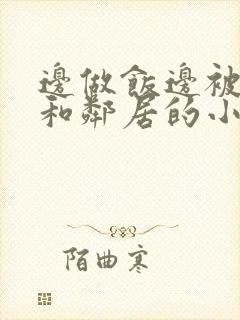 邊做飯邊被
和鄰居的小
陌曲寒